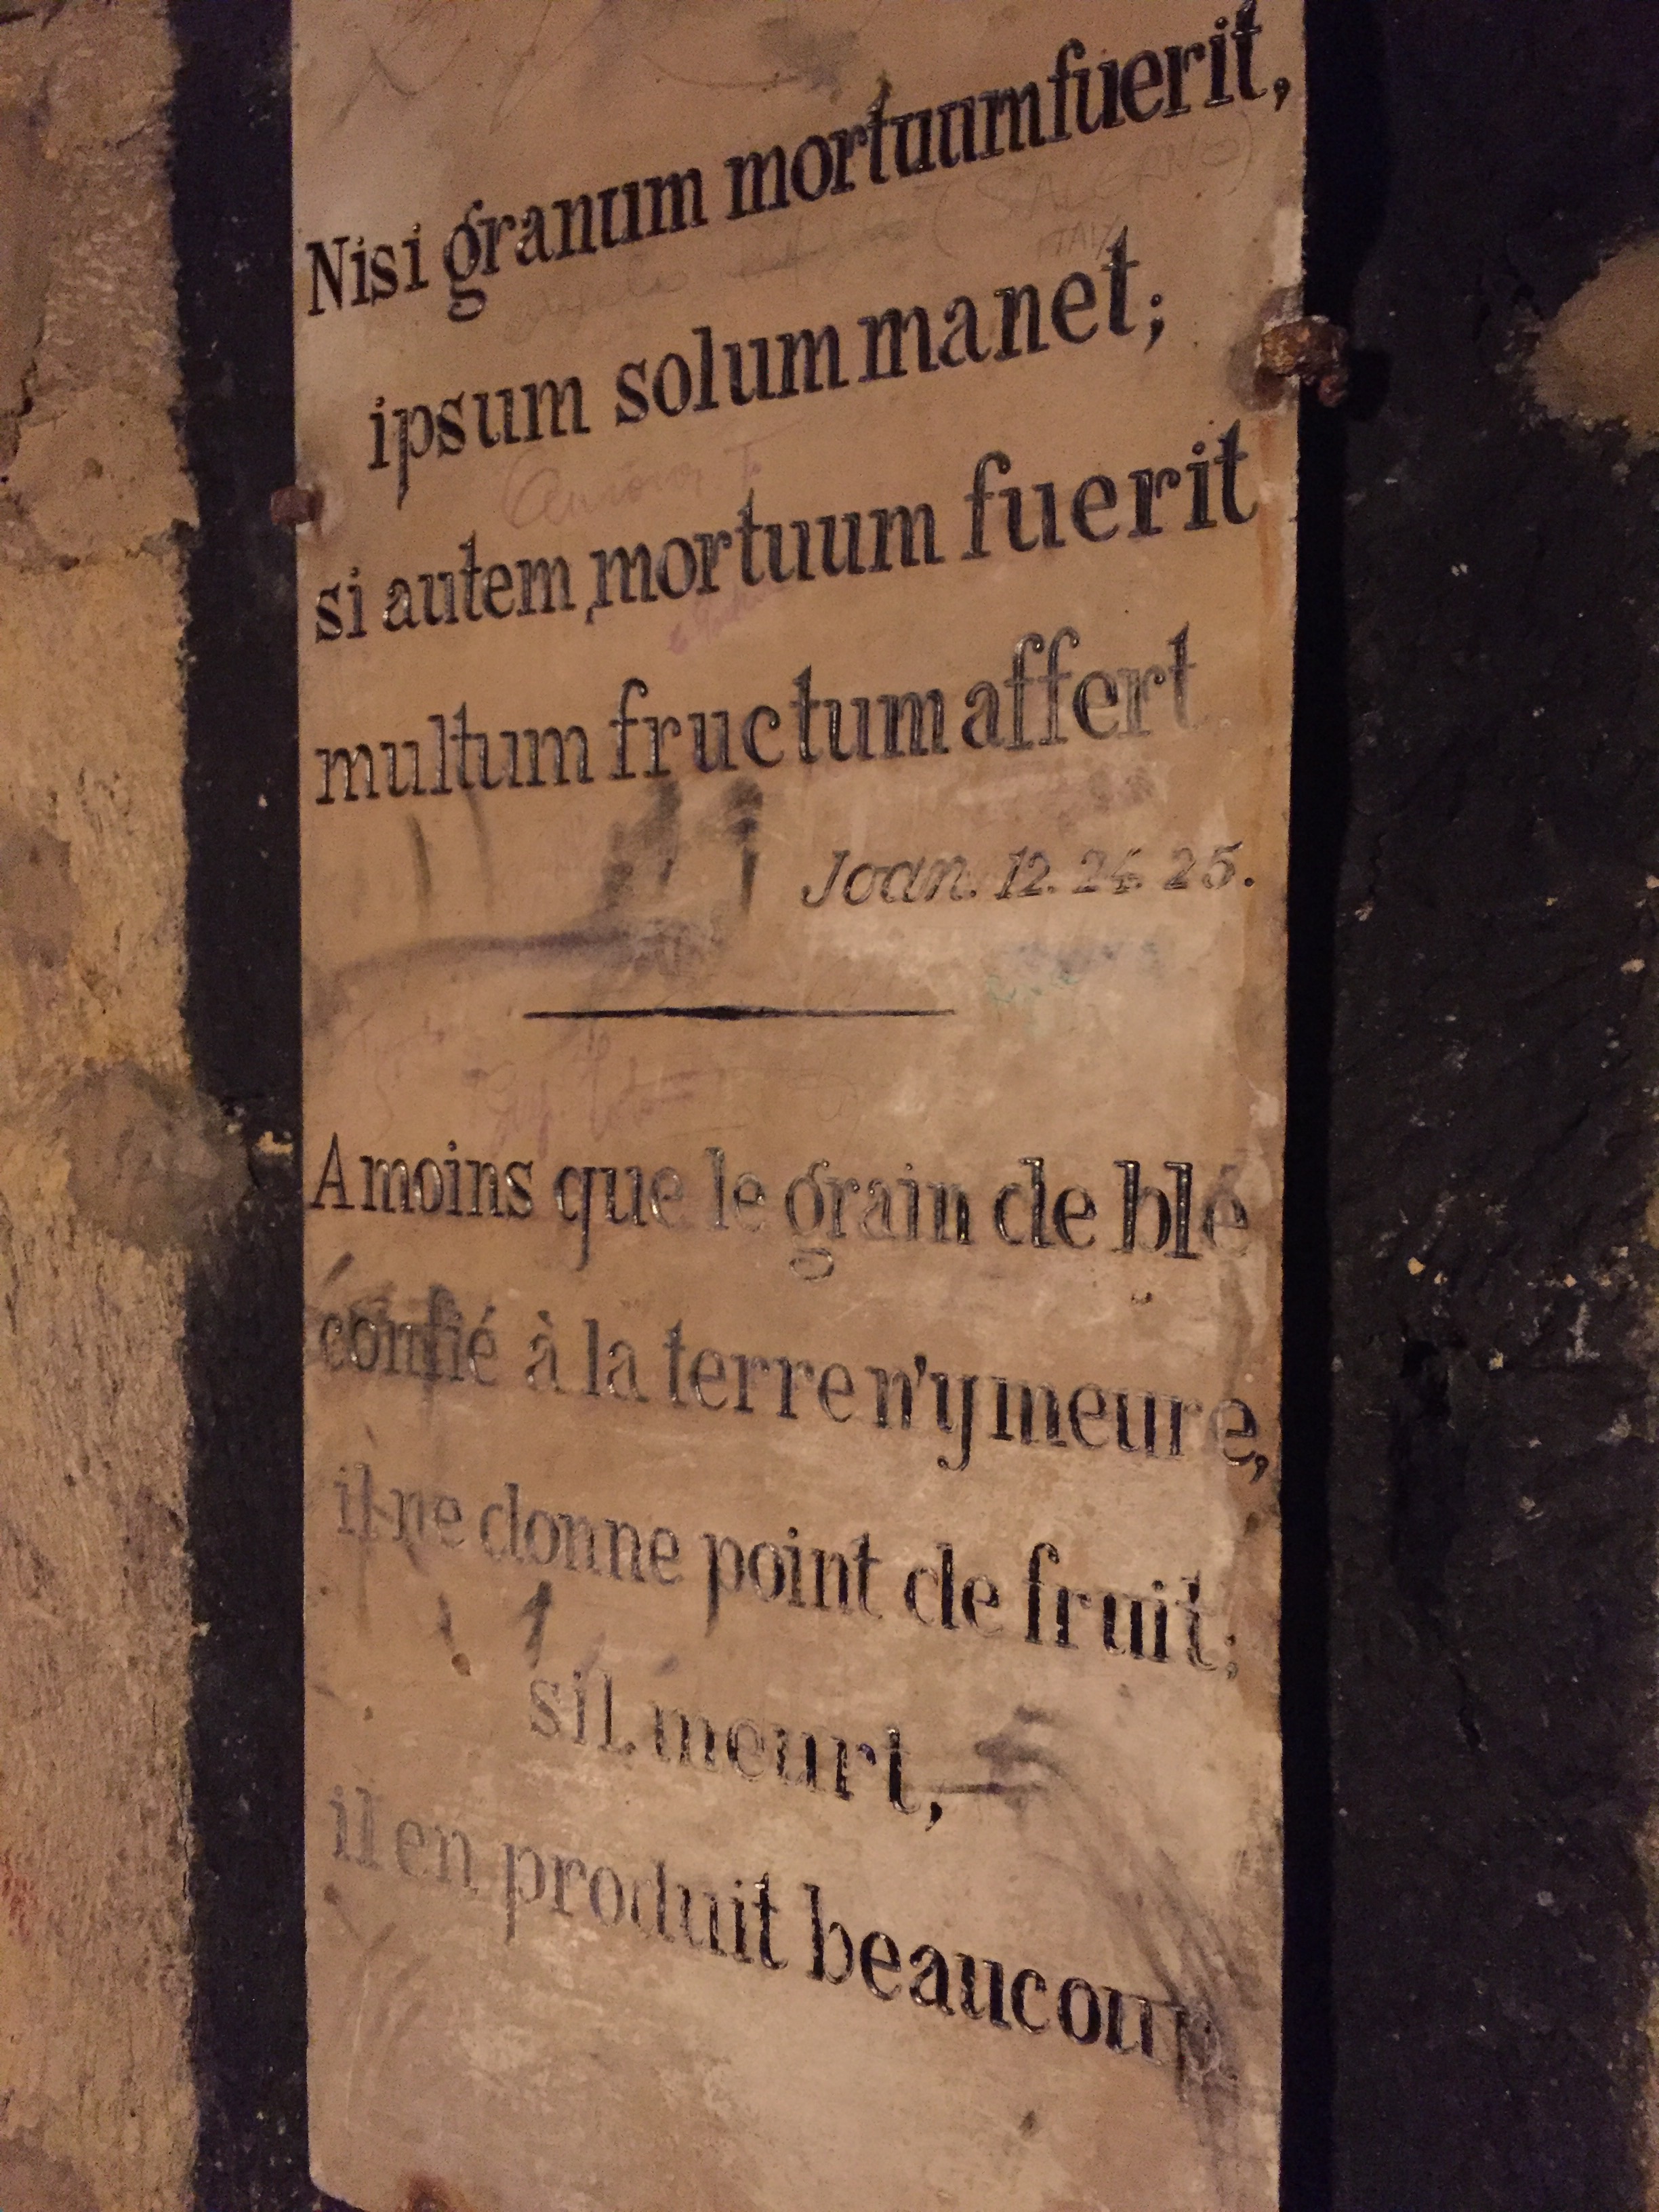 Nisi granum mortuum fuerit,
(SALERNO)
ITALY
ipsum solum manet;
si autem, mortuum fuerit
multum fructum affert
Joan. 12. 24. 25.
A moins que le grain de blé
confié à la terre n'y meure,
il ne donne point de fruit;
s'il meurt,
il en produit beaucoup